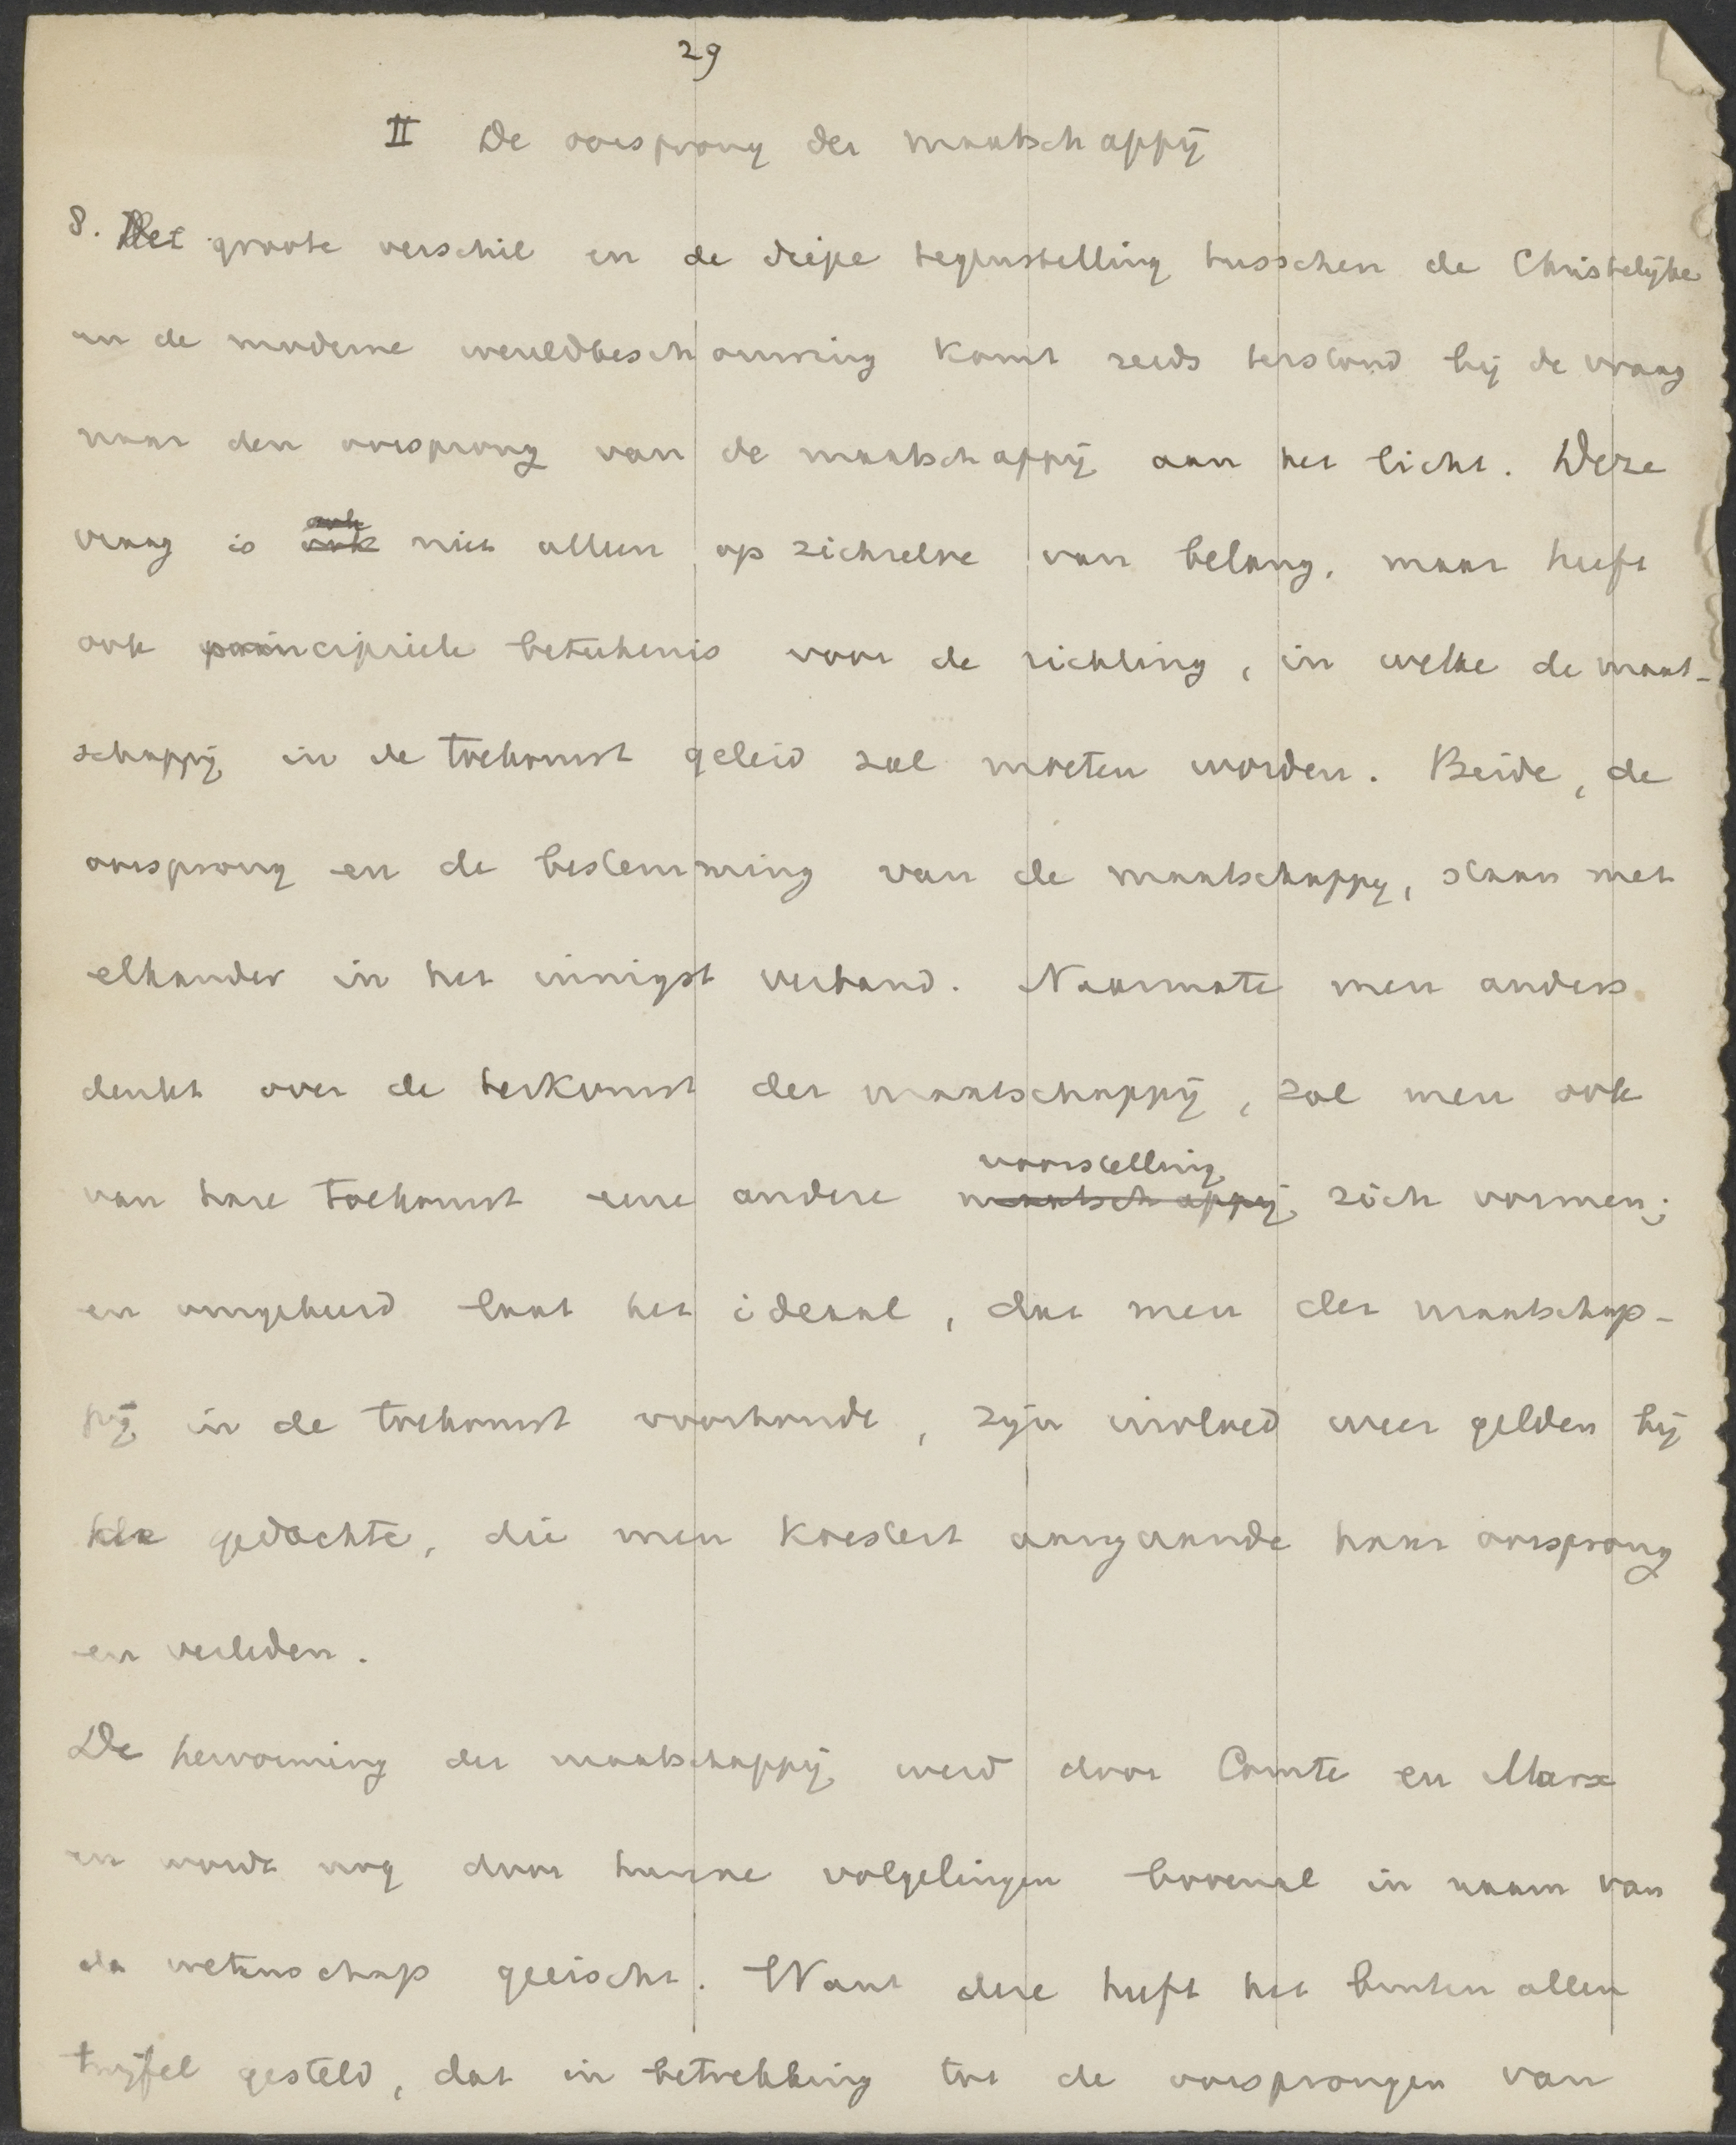 29
II De oorsprong der maatschappij
8. Het groote verschil en de diepe tegenstelling tusschen de Christelijke
en de moderne wereldbeschouwing komt reeds terstond bij de vraag
naar den oorsprong van de maatschappij aan het licht. Deze
vraag is ook niet alleen op zichzelve van belang, maar heeft
ook principieele beteekenis voor de richting, in welke de maat-
schappij in de toekomst geleid zal moeten worden. Beide, de
oorsprong en de bestemming van de maatschappij, staan met
elkander in het innigst verband. Naarmate men anders
denkt over de herkomst der maatschappij, zal men ook
voorstelling
van hare toekomst eene andere maatschappij zich vormen;
en omgekeerd laat het ideaal, dat men der maatschap-
pij in de toekomst voorhoudt, zijn invloed weer gelden bij
de gedachte, die men koestert aangaande haar oorsprong
en verleden.
De hervorming der maatschappij werd door Comte en Marx
en wordt nog door hunne volgelingen bovenal in naam van
de wetenschap geeischt. Want deze heeft het buiten allen
twijfel gesteld, dat in betrekking tot de oorsprongen van